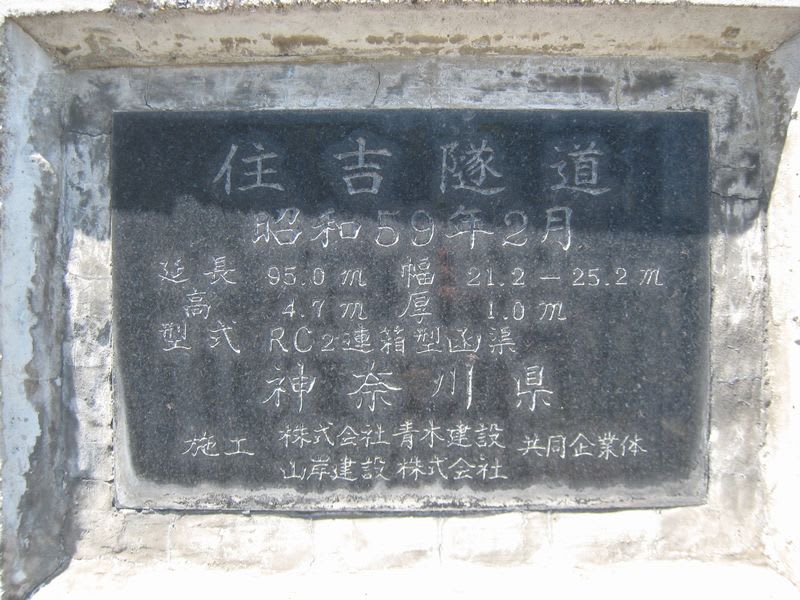 住吉隧道
昭和59年2月
延長 95.0 m 幅 21.2－25.2 m
高 4.7 m 厚 1.0 m
型式 RC2連箱型函渠
神奈川県
施工 株式会社青木建設 共同企業体
山岸建設株式会社